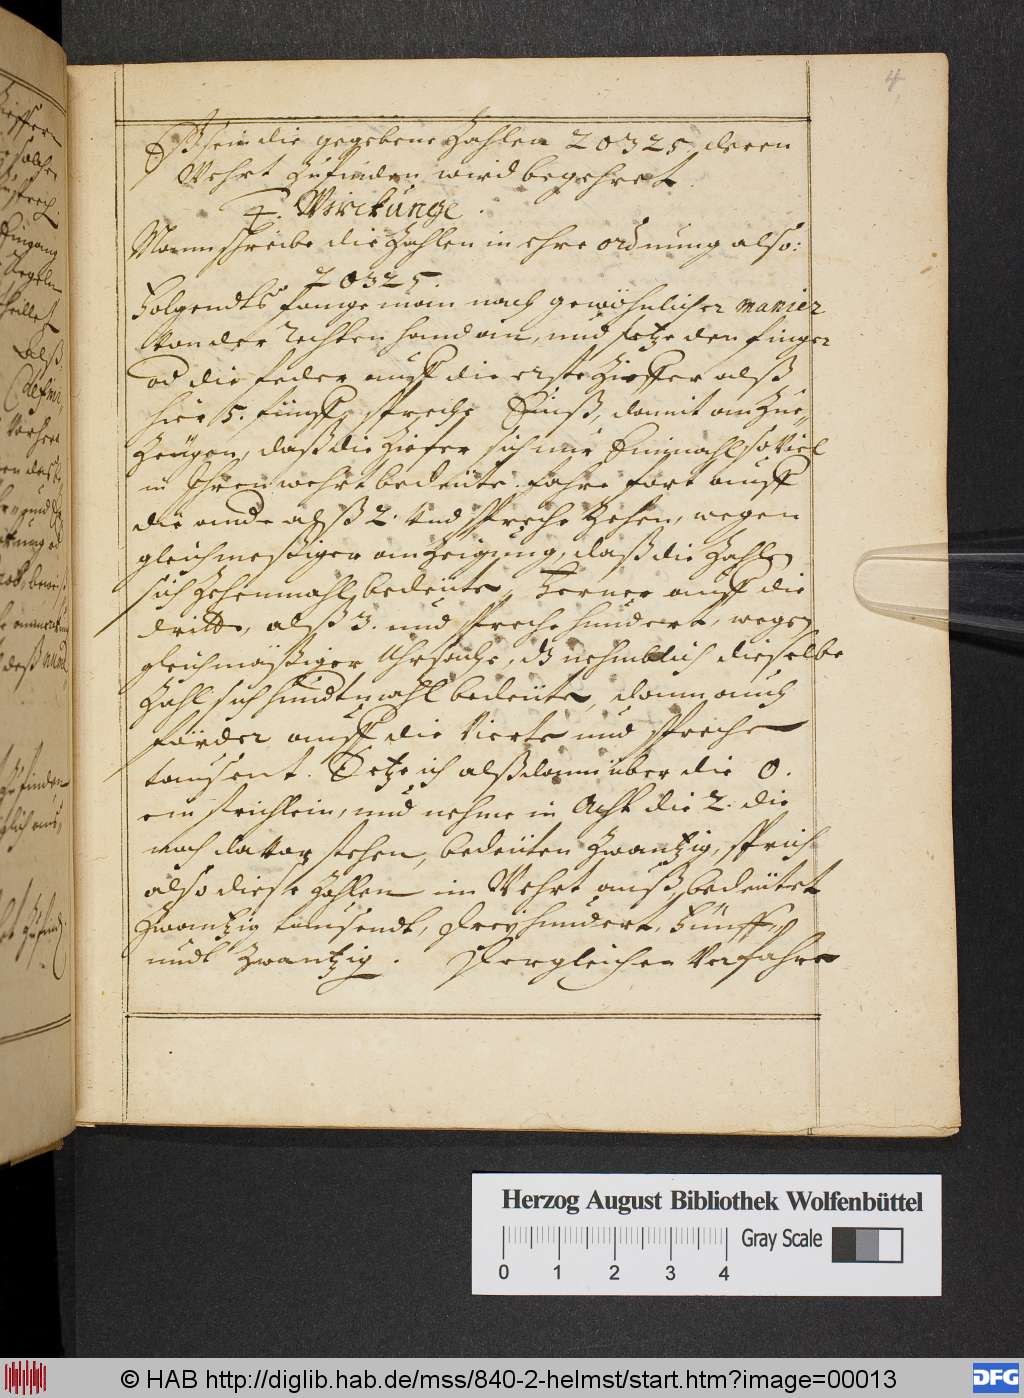 4
Es sein die gegebene Zahlen 20325. deren
Wehrt zufinden wird begehret
Wirckunge.
Mann schreibe die Zahlen in ihre ordnung also:
20325.
Folgendts fange man nach gewöhnlicher manier
von der rechten hand an, und setze den finger
od die feder auff die erste Zieffer alß
hier 5. fünff, spreche Einß, damit anZue„
Zeigen, daß die Ziefer sich nur Einmahl so Viel
in Ihren wehrt bedeute. fahre fort auff
die ande alß 2. Und spreche Zehen, wegen
gleichmeßiger anZeigung, daß die Zahlen
sich Zehenmahl bedeute, Ferner auff die
dritte, alß 3. und spreche hundert, wegen
gleichmäßiger Uhrsache, dz nehmblich dieselbe
Zahl sich hundtmahl bedeute, dann auch
förder auff die Vierte und spreche
tausent. Setze ich alßdann über die 0.
ein strichlein, und nehme in Acht die 2. die
nach davor stehen, bedeuten Zwantzig, sprich
also diese Zahlen im Wehrt auß, bedeutet
Zwantzig tausendt, dreyhundert, Fünff,
undt Zwantzig. Dergleichen Verfahre
Herzog August Bibliothek Wolfenbüttel
Gray Scale
0 1 2 3 4
© HAB http://diglib.hab.de/mss/840-2-helmst/start.htm?image=00013
DFG